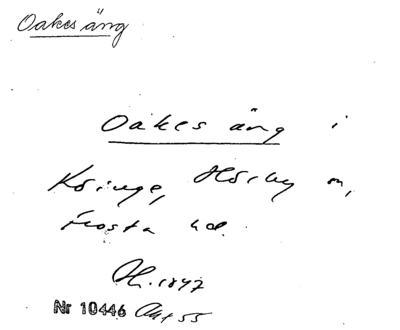 Oakes äng
Oakes äng i
Köinge, Hörby sn,
Frosta hd.
1847
Nr 10446 Akt 55